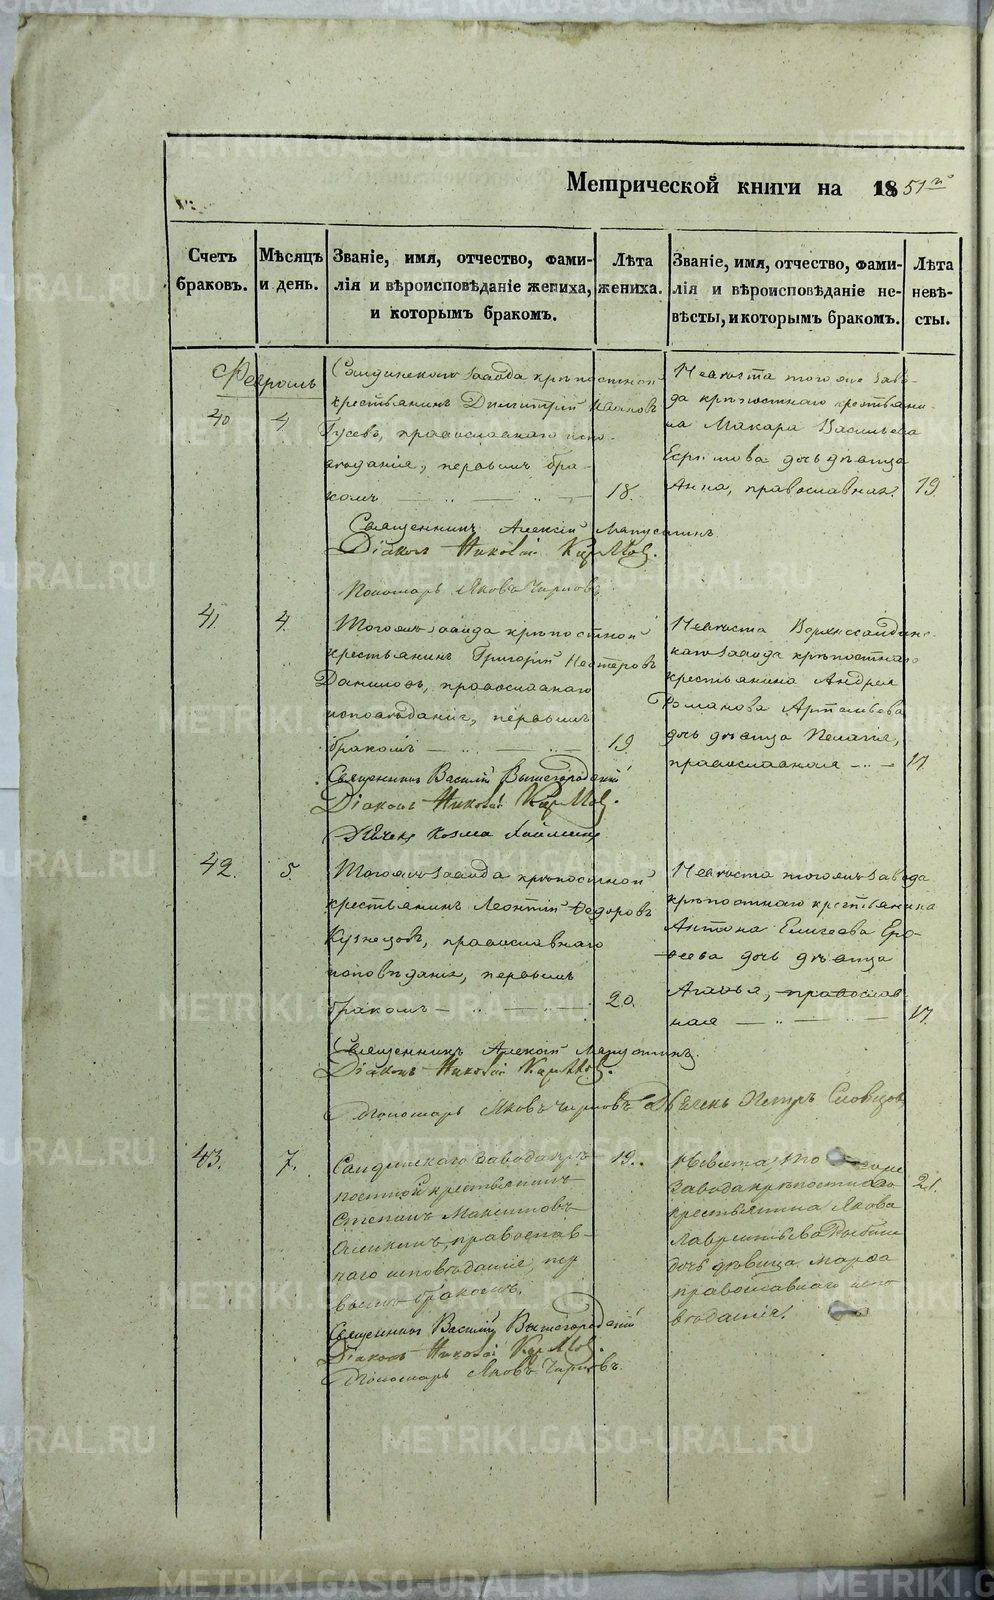 Метрической книги на 1851й
Счетъ браковъ.
Мѣсяцъ и день.
Званіе, имя, отчество, фами-
лія и вѣроисповѣданіе жениха,
и которымъ бракомъ.
Лѣта жениха.
Званіе, имя, отчество, фами-
лія и вѣроисповѣданіе не-
вѣсты, и которымъ бракомъ.
Лѣта невѣ-
сты.
Февраль
40
4
Салдинскаго завода крѣпостной
крестьянинъ Димитрій Ивановъ
Гусевъ, православнаго испо-
вѣданія, первымъ бра-
комъ
18.
Невѣста того же заво-
да крѣпостнаго крестьяни-
на Макара Васильева
дочь дѣвица
Анна, православная.
19.
Священникъ Алексій
Діаконъ Николай
Пономарь Яковъ Чирковъ
41.
4.
Тогоже завода крѣпостной
крестьянинъ Григорій Нестеровъ
Даниловъ, православнаго
исповѣданія, первымъ
бракомъ
19.
Невѣста Верхнесалдин-
скаго завода крѣпостнаго
крестьянина Андрея
Романова Артемьева
дочь дѣвица Пелагія,
православная
17.
Священникъ Василій Вышегородскій
Діаконъ Николай
Дьячекъ Козма
42.
5.
Тогоже завода крѣпостной
крестьянинъ Леонтій Федоровъ
Кузнецовъ, православнаго
исповѣданія, первымъ
бракомъ
20.
Невѣста тогоже завода
крѣпостнаго крестьянина
Антона Елисеева Еро-
феева дочь дѣвица
Агафья, православ-
ная
17.
Священникъ Алексій
Діаконъ Николай
Пономарь Яковъ Чирковъ Дьячекъ Петръ Словцовъ
43.
7.
Салдинскаго завода крѣ-
постной крестьянинъ
Степанъ Максимовъ
православ-
наго исповѣданія, пер
вымъ бракомъ.
19.
Невѣста того же
завода крѣпостнаго
крестьянина Якова
Лаврентьева
дочь дѣвица Марфа
православнаго испо
вѣданія.
21.
Священникъ Василій Вышегородскій
Діаконъ Николай
Пономарь Яковъ Чирковъ.
METRIKI.GASO-URAL.RU